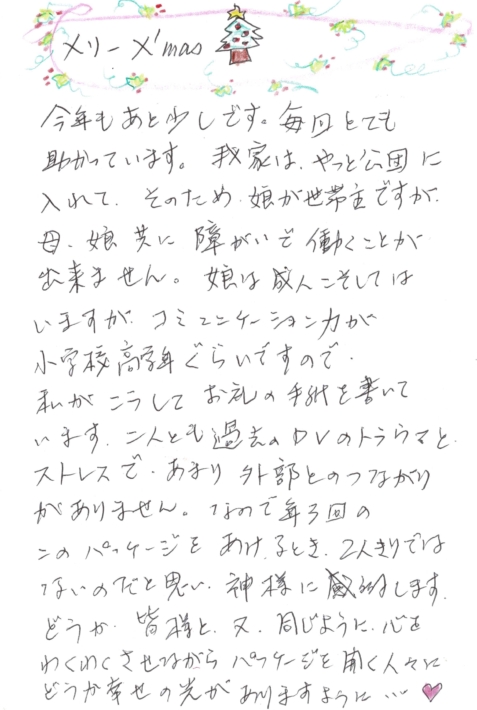 メリーX'mas
今年もあと少しです。毎回とても
助かっています。我家は、やっと公団に
入れて、そのため、娘が世帯主ですが、
母、娘共に障がいで働くことが
出来ません。娘は成人こそしては
いますが、コミュニケーション力が
小学校高学年ぐらいですので、
私がこうしてお礼の手紙を書いて
います。二人とも過去のDVのトラウマと
ストレスで、あまり外部とのつながり
がありません。なので年3回の
このパッケージをあけるとき、2人きりでは
ないのだと思い、神様に感謝します。
どうか、皆様と、又、同じように、心を
わくわくさせながらパッケージを開く人々に
どうか幸せの光がありますように…♥